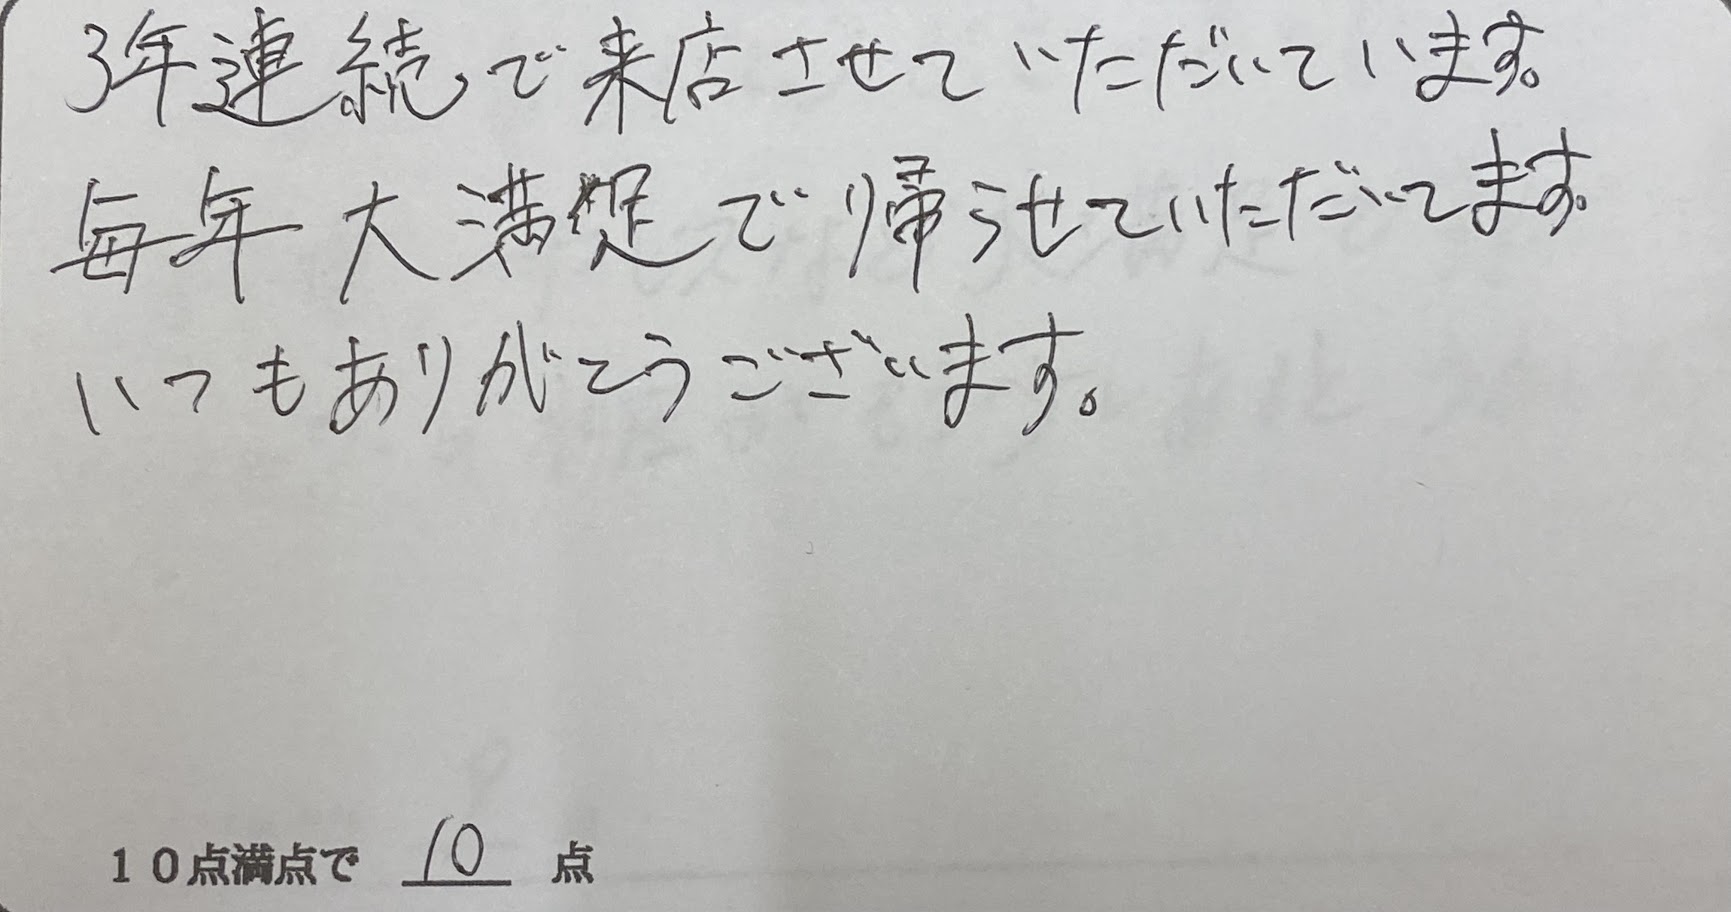 3年連続で来店させていただいています。
毎年大満足で帰らせていただいてます。
いつもありがとうございます。
10点満点で 10 点